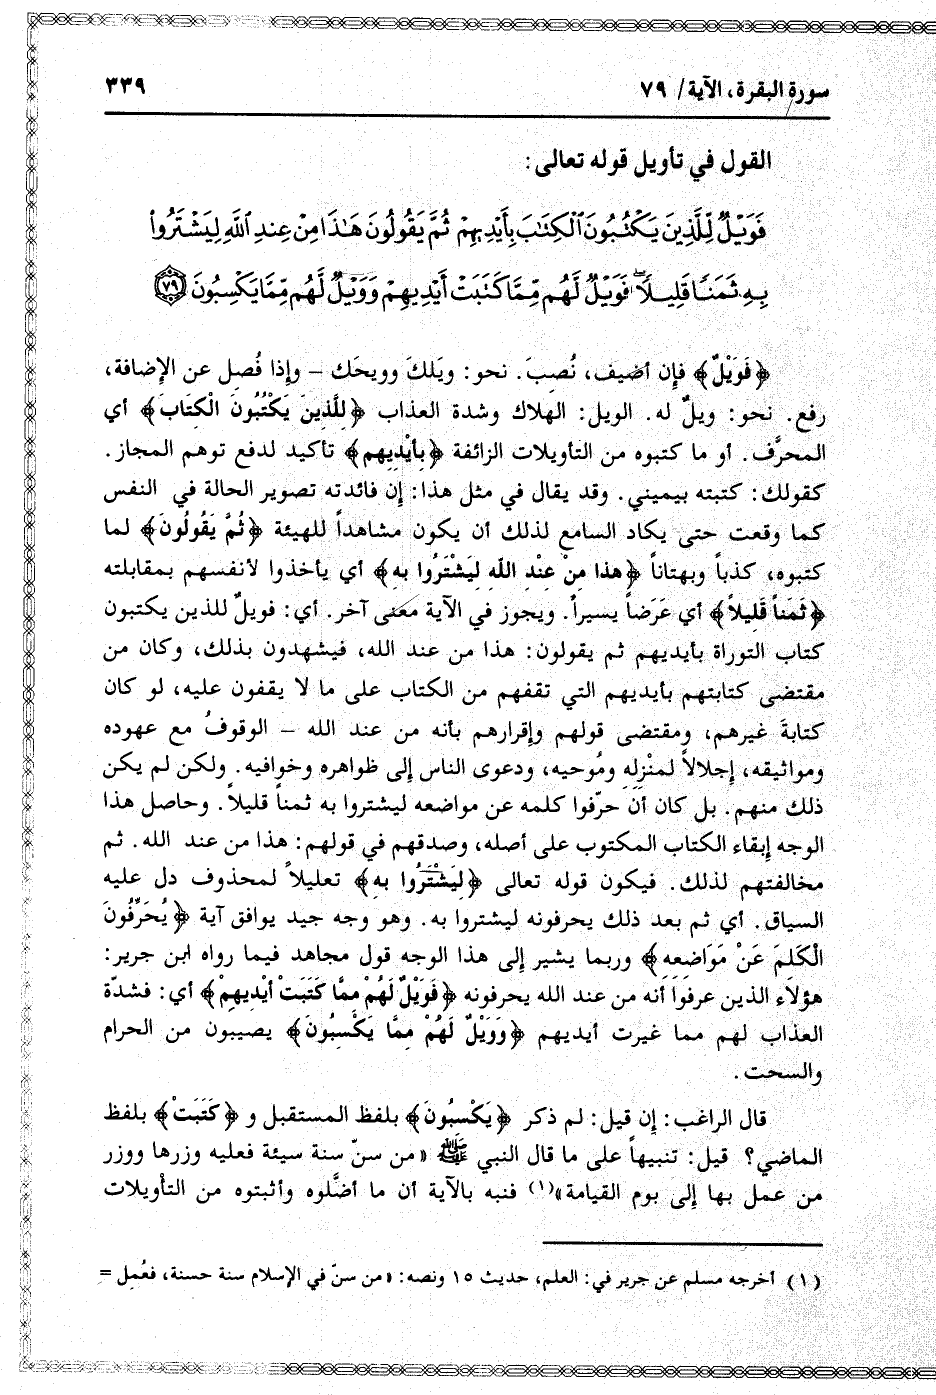 سورة البقرة، الآية/ ٧٩
٣٣٩
القول في تأويل قوله تعالى:
فَوَيْلٌ لِّلَّذِينَ يَكْتُبُونَ ٱلْكِتَٰبَ بِأَيْدِيهِمْ ثُمَّ يَقُولُونَ هَٰذَا مِنْ عِندِ ٱللَّهِ لِيَشْتَرُوا۟
بِهِۦ ثَمَنًا قَلِيلًا ۖ فَوَيْلٌ لَّهُم مِّمَّا كَتَبَتْ أَيْدِيهِمْ وَوَيْلٌ لَّهُم مِّمَّا يَكْسِبُونَ ٧٩
﴿فَوَيْلٌ﴾ فإن أضيف، نُصبَ. نحو: ويَلكَ وويحَك – وإذا فُصل عن الإضافة،
رفع. نحو: ويلٌ له. الويل: الهلاك وشدة العذاب ﴿لِلَّذِينَ يَكْتُبُونَ الْكِتَابَ﴾ أي
المحرَّف. أو ما كتبوه من التأويلات الزائفة ﴿بِأَيْدِيهِم﴾ تأكيد لدفع توهم المجاز.
كقولك: كتبته بيميني. وقد يقال في مثل هذا: إن فائدته تصوير الحالة في النفس
كما وقعت حتى يكاد السامع لذلك أن يكون مشاهداً للهيئة ﴿ثُمَّ يَقُولُونَ﴾ لما
كتبوه، كذباً وبهتاناً ﴿هذا مِنْ عِنْدِ اللّهِ لِيَشْتَرُوا بِهِ﴾ أي يأخذوا لأنفسهم بمقابلته
﴿ثَمَناً قَلِيلاً﴾ أي عَرَضاً يسيراً. ويجوز في الآية معنى آخر. أي: فويلٌ للذين يكتبون
كتاب التوراة بأيديهم ثم يقولون: هذا من عند الله، فيشهدون بذلك، وكان من
مقتضى كتابتهم بأيديهم التي تقفهم من الكتاب على ما لا يقفون عليه، لو كان
كتابةَ غيرهم، ومقتضى قولهم وإقرارهم بأنه من عند الله – الوقوفُ مع عهوده
ومواثيقه، إجلالاً لمنْزِلِهِ ومُوحيه، ودعوى الناس إلى ظواهره وخوافيه. ولكن لم يكن
ذلك منهم. بل كان أن حرّفوا كلمه عن مواضعه ليشتروا به ثمناً قليلاً. وحاصل هذا
الوجه إبقاء الكتاب المكتوب على أصله، وصدقهم في قولهم: هذا من عند الله. ثم
مخالفتهم لذلك. فيكون قوله تعالى ﴿لِيَشْتَرُوا بِهِ﴾ تعليلاً لمحذوف دل عليه
السياق. أي ثم بعد ذلك يحرفونه ليشتروا به. وهو وجه جيد يوافق آية ﴿يُحَرِّفُونَ
الْكَلِمَ عَنْ مَوَاضِعِهِ﴾ وربما يشير إلى هذا الوجه قول مجاهد فيما رواه ابن جرير:
هؤلاء الذين عرفوا أنه من عند الله يحرفونه ﴿فَوَيْلٌ لَهُمْ مِمَّا كَتَبَتْ أَيْدِيهِمْ﴾ أي: فشدّة
العذاب لهم مما غيرت أيديهم ﴿وَوَيْلٌ لَهُمْ مِمَّا يَكْسِبُونَ﴾ يصيبون من الحرام
والسحت.
قال الراغب: إن قيل: لم ذكر ﴿يَكْسِبُونَ﴾ بلفظ المستقبل و ﴿كَتَبَتْ﴾ بلفظ
الماضي؟ قيل: تنبيهاً على ما قال النبي ﷺ «من سنّ سنة سيئة فعليه وزرها ووزر
من عمل بها إلى يوم القيامة»(١) فنبه بالآية أن ما أضَّلوه وأثبتوه من التأويلات
(١) أخرجه مسلم عن جرير في: العلم، حديث ١٥ ونصه: «من سنّ في الإسلام سنة حسنة، فعُمِل =